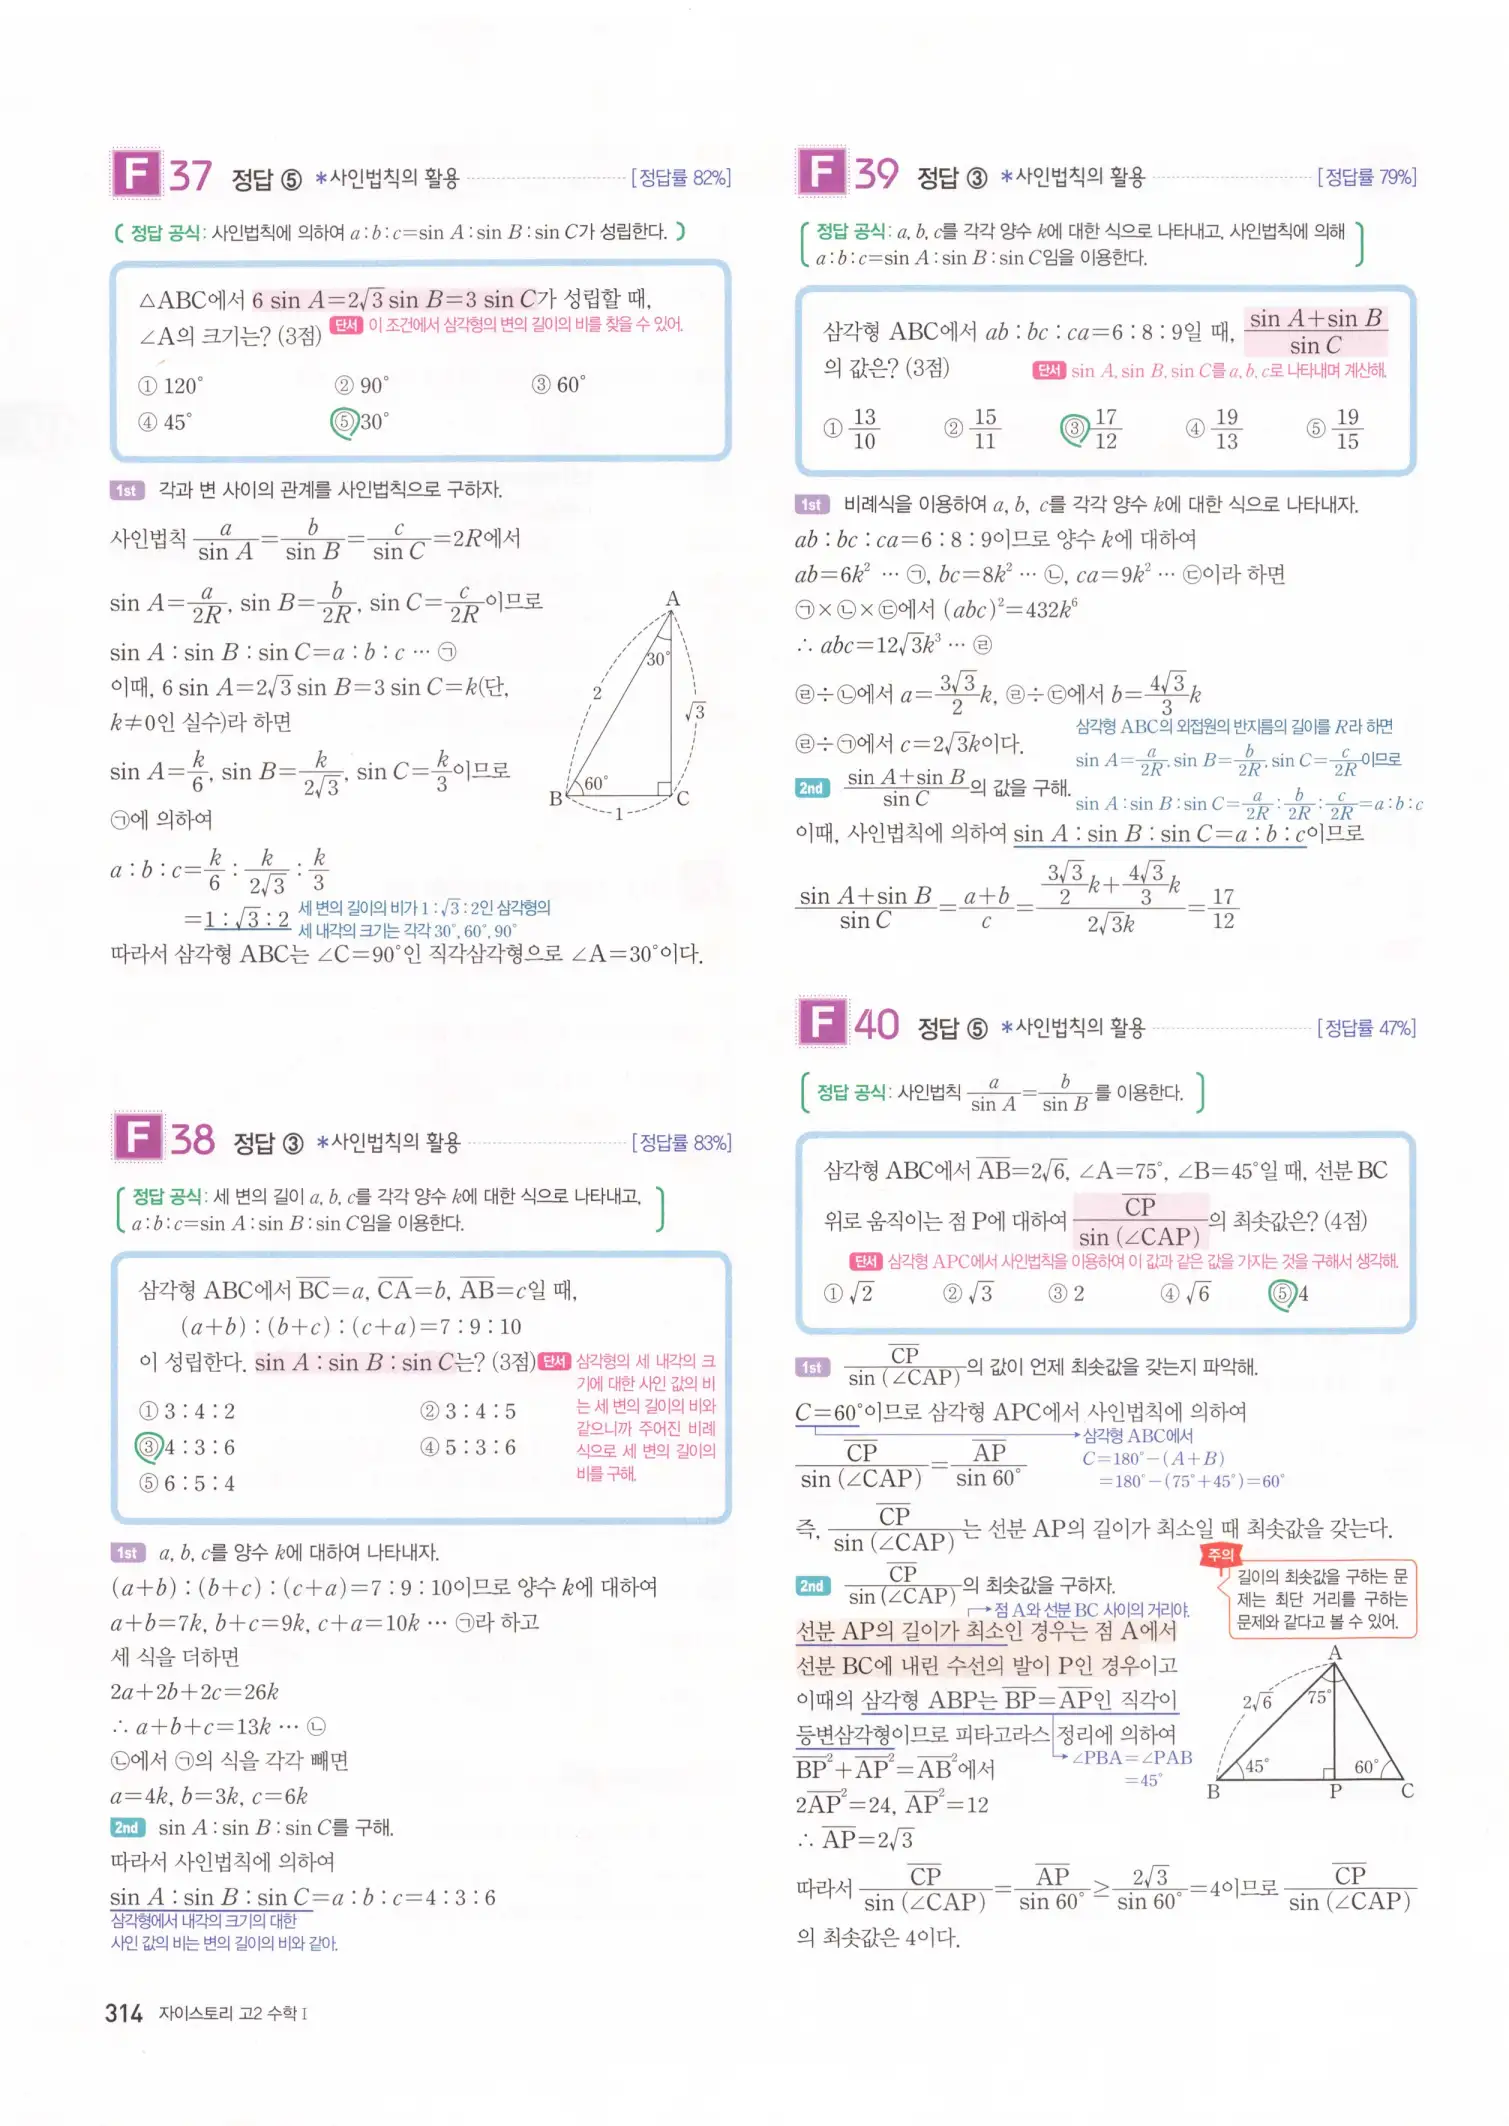 F 37 정답 ⑤ *사인법칙의 활용 [정답률 82%]
( 정답 공식: 사인법칙에 의하여 a : b : c=sin A : sin B : sin C가 성립한다. )
△ABC에서 6 sin A=2√3 sin B=3 sin C가 성립할 때,
∠A의 크기는? (3점) 단서 이 조건에서 삼각형의 변의 길이의 비를 찾을 수 있어.
① 120° ② 90° ③ 60°
④ 45° ⑤ 30°
1st 각과 변 사이의 관계를 사인법칙으로 구하자.
사인법칙 a/sin A = b/sin B = c/sin C =2R에서
sin A=a/2R, sin B=b/2R, sin C=c/2R이므로
sin A : sin B : sin C=a : b : c … ㉠
이때, 6 sin A=2√3 sin B=3 sin C=k(단,
k≠0인 실수)라 하면
sin A=k/6, sin B=k/2√3, sin C=k/3이므로
㉠에 의하여
a : b : c=k/6 : k/2√3 : k/3
=1 : √3 : 2 세 변의 길이의 비가 1 : √3 : 2인 삼각형의
세 내각의 크기는 각각 30°, 60°, 90°
따라서 삼각형 ABC는 ∠C=90°인 직각삼각형으로 ∠A=30°이다.
A
30°
2
√3
60°
B
C
1
F 38 정답 ③ *사인법칙의 활용 [정답률 83%]
( 정답 공식: 세 변의 길이 a, b, c를 각각 양수 k에 대한 식으로 나타내고,
a : b : c=sin A : sin B : sin C임을 이용한다. )
삼각형 ABC에서 B̅C̅=a, C̅A̅=b, A̅B̅=c일 때,
(a+b) : (b+c) : (c+a)=7 : 9 : 10
이 성립한다. sin A : sin B : sin C는? (3점) 단서 삼각형의 세 내각의 크
기에 대한 사인 값의 비
는 세 변의 길이의 비와
같으니까 주어진 비례
식으로 세 변의 길이의
비를 구해.
① 3 : 4 : 2 ② 3 : 4 : 5
③ 4 : 3 : 6 ④ 5 : 3 : 6
⑤ 6 : 5 : 4
1st a, b, c를 양수 k에 대하여 나타내자.
(a+b) : (b+c) : (c+a)=7 : 9 : 10이므로 양수 k에 대하여
a+b=7k, b+c=9k, c+a=10k … ㉠라 하고
세 식을 더하면
2a+2b+2c=26k
∴ a+b+c=13k … ㉡
㉡에서 ㉠의 식을 각각 빼면
a=4k, b=3k, c=6k
2nd sin A : sin B : sin C를 구해.
따라서 사인법칙에 의하여
sin A : sin B : sin C=a : b : c=4 : 3 : 6
삼각형에서 내각의 크기의 대한
사인 값의 비는 변의 길이의 비와 같아.
314 자이스토리 고2 수학 I
F 39 정답 ③ *사인법칙의 활용 [정답률 79%]
( 정답 공식: a, b, c를 각각 양수 k에 대한 식으로 나타내고, 사인법칙에 의해
a : b : c=sin A : sin B : sin C임을 이용한다. )
삼각형 ABC에서 ab : bc : ca=6 : 8 : 9일 때, (sin A+sin B)/sin C
의 값은? (3점) 단서 sin A, sin B, sin C를 a, b, c로 나타내며 계산해.
① 13/10 ② 15/11 ③ 17/12 ④ 19/13 ⑤ 19/15
1st 비례식을 이용하여 a, b, c를 각각 양수 k에 대한 식으로 나타내자.
ab : bc : ca=6 : 8 : 9이므로 양수 k에 대하여
ab=6k² … ㉠, bc=8k² … ㉡, ca=9k² … ㉢이라 하면
㉠×㉡×㉢에서 (abc)²=432k⁶
∴ abc=12√3k³ … ㉣
㉣÷㉡에서 a=3√3/2 k, ㉣÷㉢에서 b=4√3/3 k
㉣÷㉠에서 c=2√3k이다.
삼각형 ABC의 외접원의 반지름의 길이를 R라 하면
sin A=a/2R, sin B=b/2R, sin C=c/2R이므로
sin A : sin B : sin C=a/2R : b/2R : c/2R=a : b : c
2nd (sin A+sin B)/sin C의 값을 구해.
이때, 사인법칙에 의하여 sin A : sin B : sin C=a : b : c이므로
(sin A+sin B)/sin C=(a+b)/c=(3√3/2 k+4√3/3 k)/2√3k=17/12
F 40 정답 ⑤ *사인법칙의 활용 [정답률 47%]
( 정답 공식: 사인법칙 a/sin A=b/sin B를 이용한다. )
삼각형 ABC에서 A̅B̅=2√6, ∠A=75°, ∠B=45°일 때, 선분 BC
위로 움직이는 점 P에 대하여 C̅P̅/sin (∠CAP)의 최솟값은? (4점)
단서 삼각형 APC에서 사인법칙을 이용하여 이 값과 같은 값을 가지는 것을 구해서 생각해.
① √2 ② √3 ③ 2 ④ √6 ⑤ 4
1st C̅P̅/sin (∠CAP)의 값이 언제 최솟값을 갖는지 파악해.
C=60°이므로 삼각형 APC에서 사인법칙에 의하여
삼각형 ABC에서
C=180°-(A+B)
=180°-(75°+45°)=60°
C̅P̅/sin (∠CAP)=A̅P̅/sin 60°
즉, C̅P̅/sin (∠CAP)는 선분 AP의 길이가 최소일 때 최솟값을 갖는다.
2nd C̅P̅/sin (∠CAP)의 최솟값을 구하자.
주의
길이의 최솟값을 구하는 문
제는 최단 거리를 구하는
문제와 같다고 볼 수 있어.
점 A와 선분 BC 사이의 거리야.
선분 AP의 길이가 최소인 경우는 점 A에서
선분 BC에 내린 수선의 발이 P인 경우이고
이때의 삼각형 ABP는 B̅P̅=A̅P̅인 직각이
등변삼각형이므로 피타고라스 정리에 의하여
∠PBA=∠PAB
=45°
B̅P̅²+A̅P̅²=A̅B̅²에서
2A̅P̅²=24, A̅P̅²=12
∴ A̅P̅=2√3
A
2√6
75°
45°
60°
B
P
C
따라서 C̅P̅/sin (∠CAP)=A̅P̅/sin 60°≥2√3/sin 60°=4이므로 C̅P̅/sin (∠CAP)
의 최솟값은 4이다.